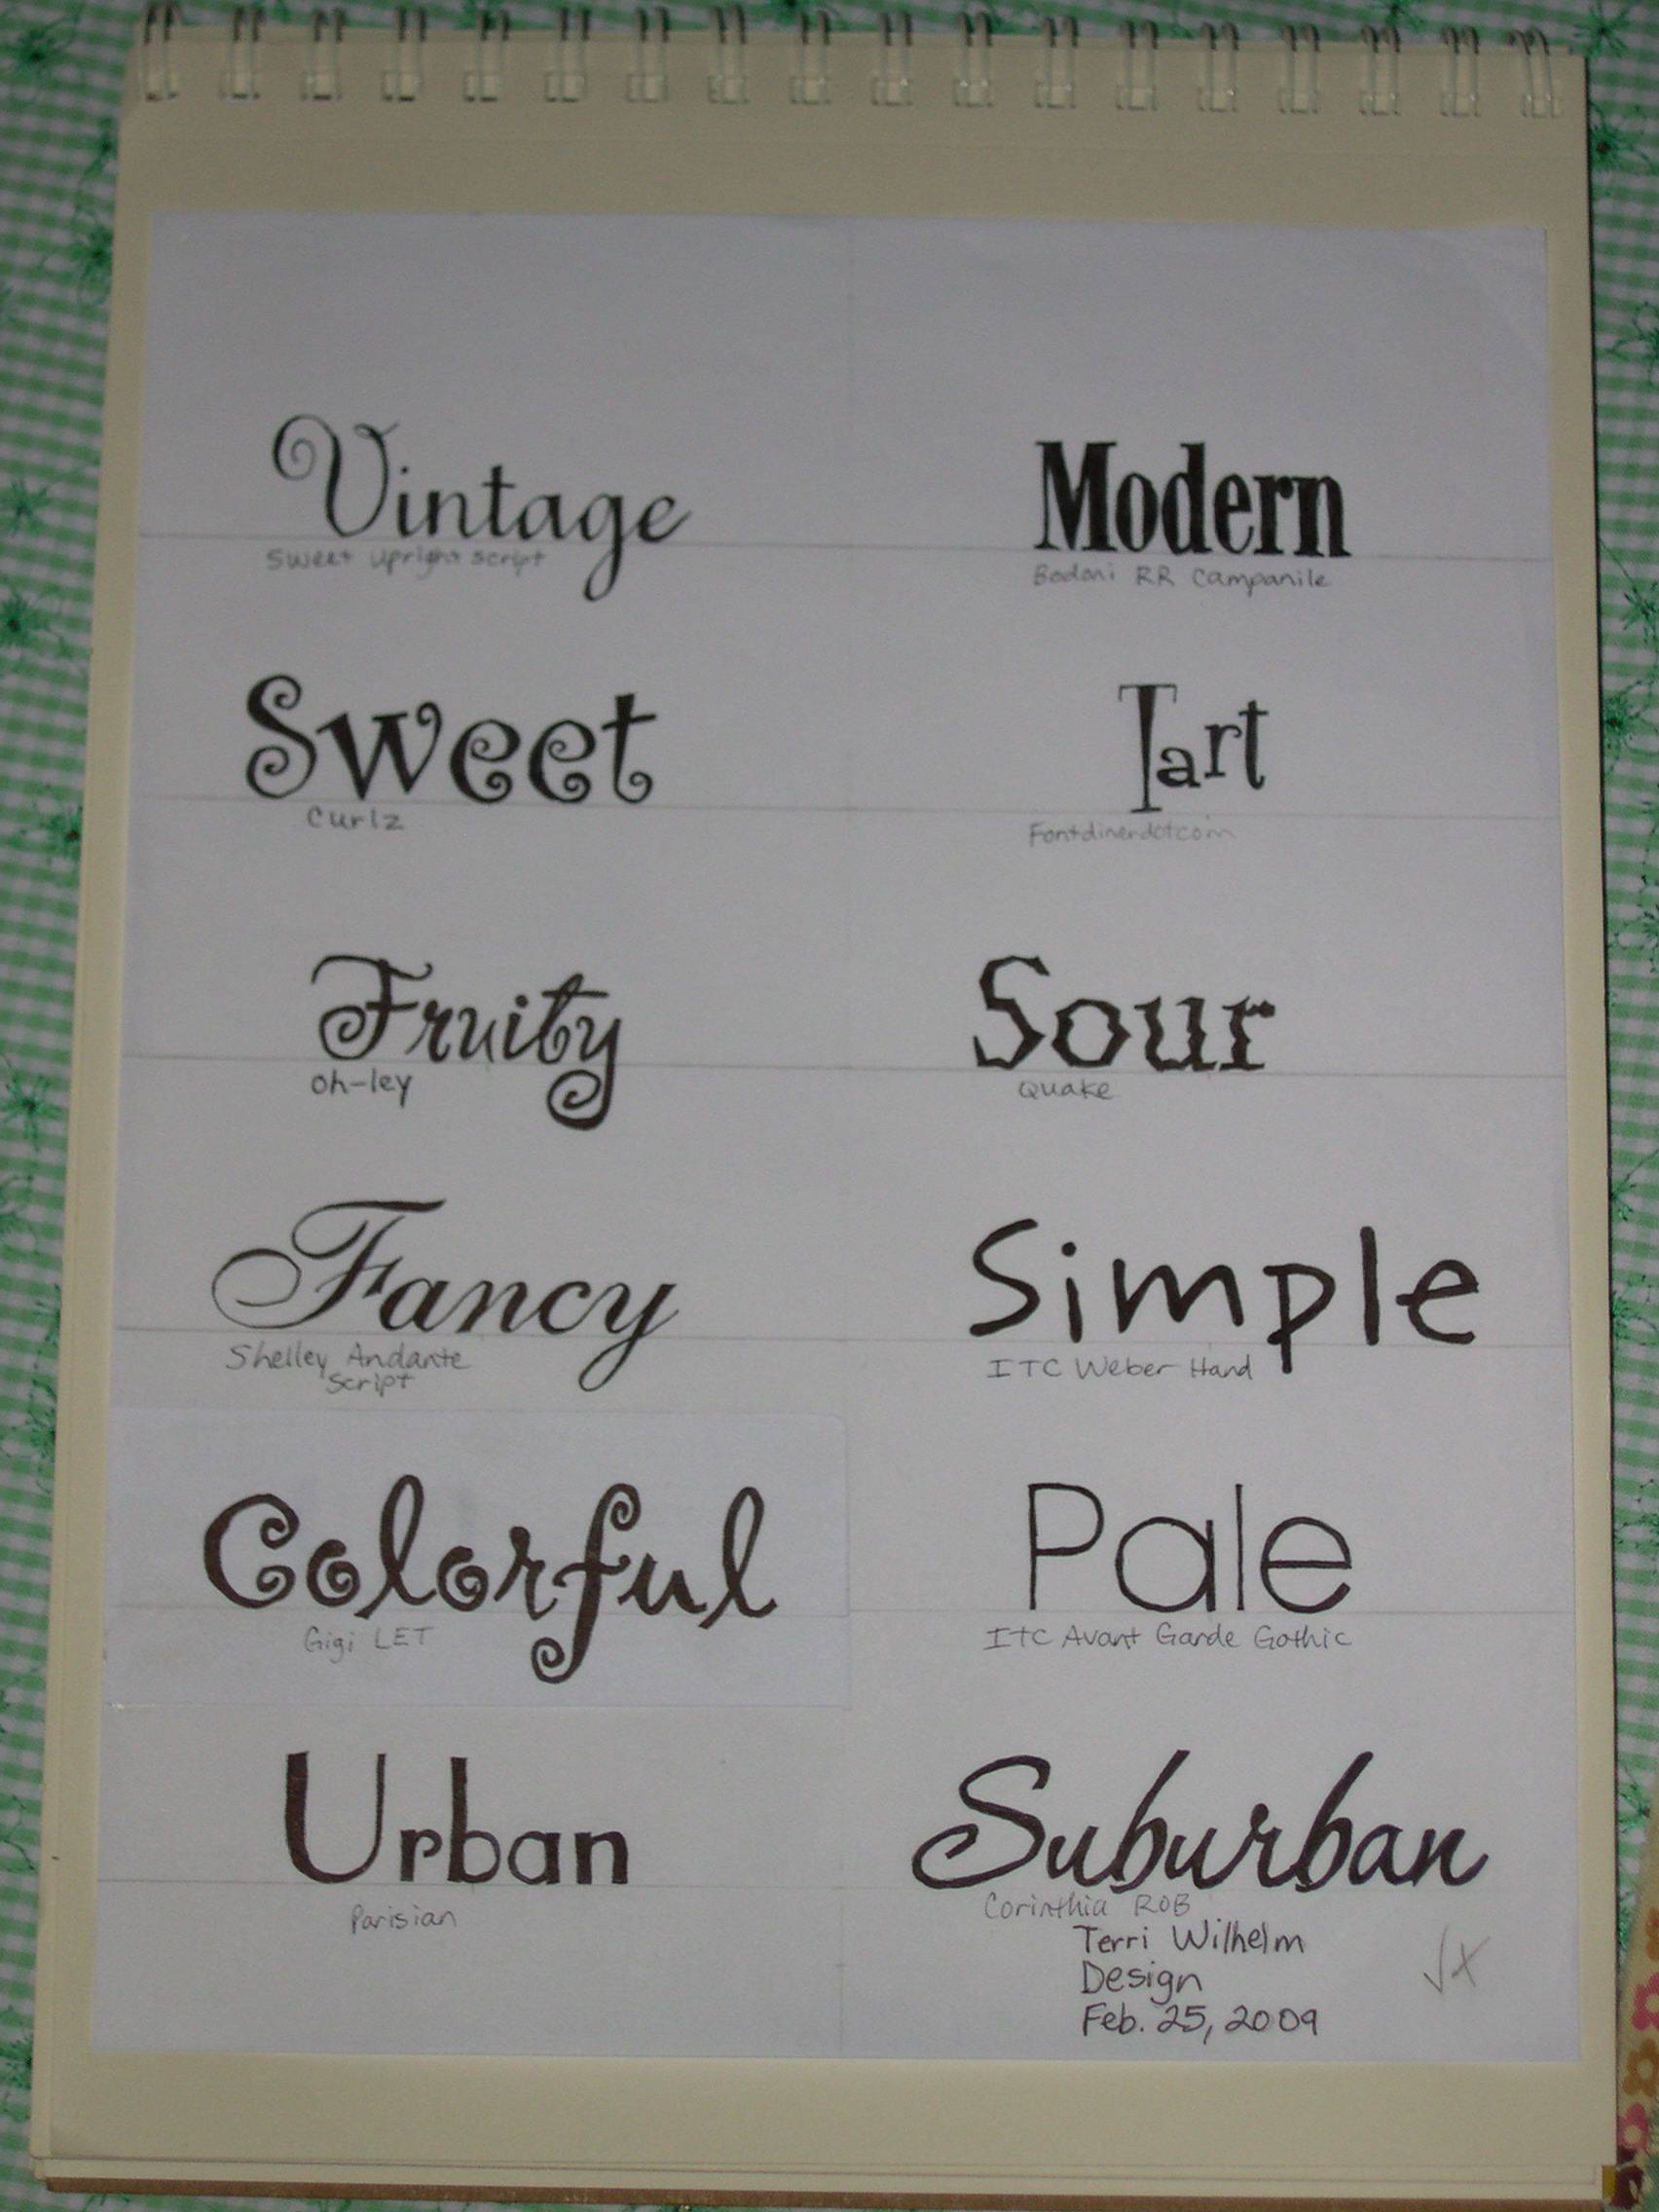 Vintage
Sweet upright script
Modern
Bodoni RR Campanile
Sweet
Curlz
Tart
Fontdinerdotcom
Fruity
oh-ley
Sour
Quake
Fancy
Shelley Andante
Script
Simple
ITC Weber Hand
Colorful
Gigi LET
Pale
ITC Avant Garde Gothic
Urban
Parisian
Suburban
Corinthia ROB
Terri Wilhelm
Design
Feb. 25, 2009
√+